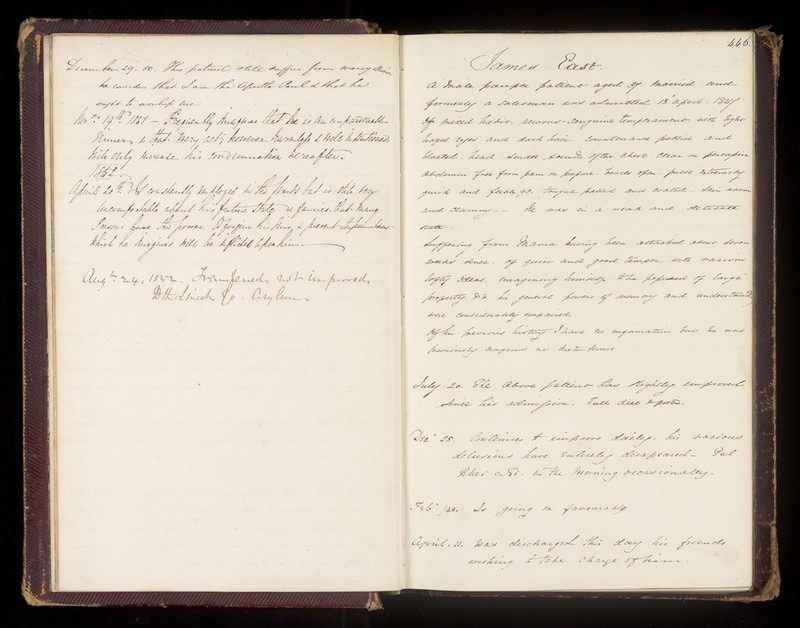 December 29. 50. This patient still suffers from many
he considers that I am the Apostle Paul & that he
ought to worship me
Nov.r 19th 1851 — Frequently imagines that he is an unpardonable
Sinner, & that every act, however harmless & well intentioned
will only increase his condemnation hereafter.
1852.
April 20th Is constantly employed in the but is still very
uncomfortable about his future state & fancies that many
Persons have the power to forgive his sins, & prevent the punishment
which he imagines will be inflicted upon him.
Augt 24, 1852. Transferred, not improved,
to the Lincoln Co. Asylum
446.
James East.
A Male pauper patient aged 37 married and
formerly a Salesman was admitted 13 April. 1847
Of mixed habit, nervous-sanguine temperament with light
hazel eyes and dark hair. Countenance pallid and
bloated. head small sounds of the chest clear on percussion
abdomen free from pain on pressure. bowels open. pulse extremely
quick and feeble, 90. tongue pallid and coated. Skin warm
and clammy — He was in a weak and
state.
Suffering from Mania having been attacked about seven
weeks since. of quiet and good temper with various
lofty ideas. imagining himself the possessor of large
property &c &c his general powers of memory and understanding
were considerably impaired
Of his previous history I have no information but he was
previously confined at
July. 20. The above patient has slightly improved
since his admission. Full diet & porter.
Dec.r 25. Continues to improve daily. his various
delusions have entirely disappeared.
in the Morning occasionally.
Feb. Is going on favourably
April. 11. Was discharged this day his friends
wishing to take charge of him.